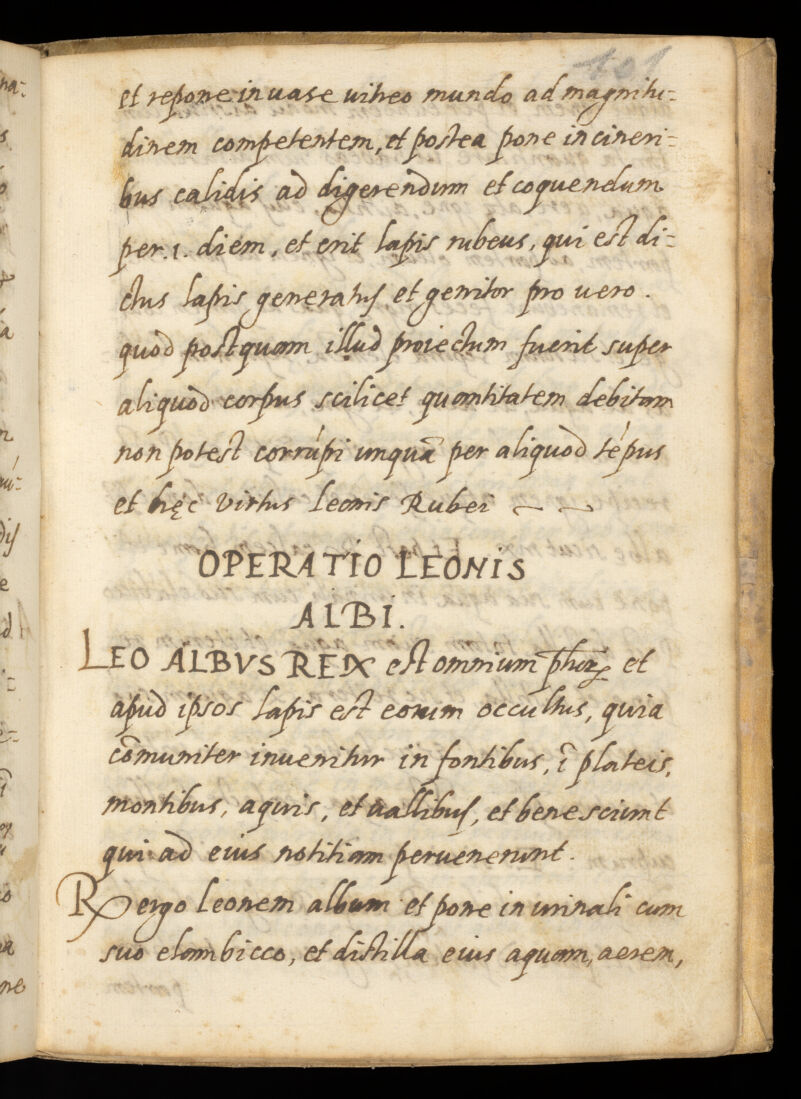 101
et repone in uase uitreo mundo ad magnitu=
dinem competentem, et postea pone in cineri=
bus calidis ad digerendum et coquendum
per .1. diem, et erit lapis rubeus, qui est di=
ctus lapis generatus et genitor pro uero.
quod postquam illud proiectum fuerit super
aliquod corpus scilicet quantitatem debitam
non potest corrúpi unquã per aliquod tépus
et hęc virtus Leonis Rubei ~ ~
OPERATIO LEONIS
ALBI.
LEO ALBVS REX est omnium et
apud ipsos lapis est eorum occultus, quia
cõmuniter inuenitur in fontibus, ĩ plateis,
montibus, aquis, et uallibus, et bene sciunt
qui ad eius notitiam peruenerunt.
℞ ergo Leonem album et pone in urinali cum
suo elambicco, et distilla eius aquam, aerem,